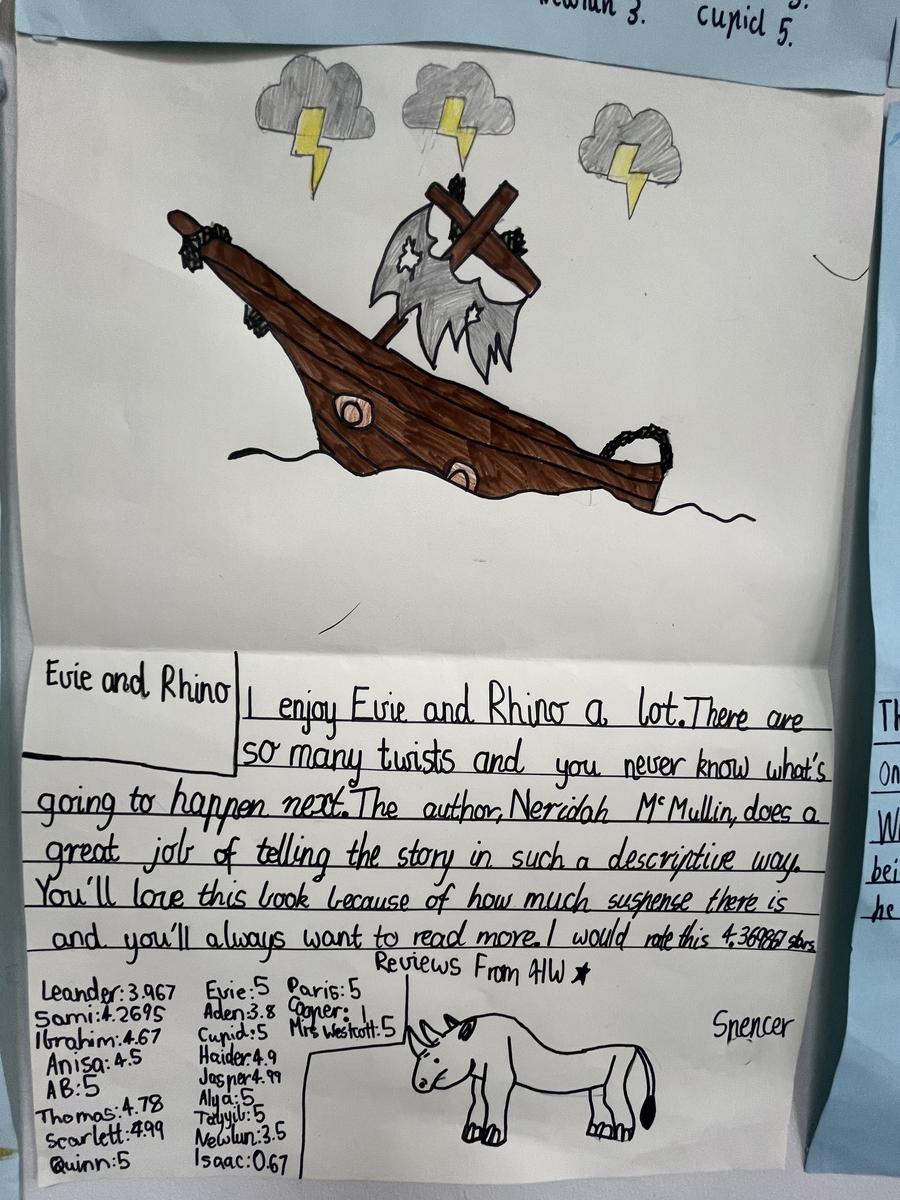 3.
cupid 5.
Evie and Rhino
I enjoy Evie and Rhino a lot. There are
so many twists and you never know what's
going to happen next. The author, Neridah McMullin, does a
great job of telling the story in such a descriptive way.
You'll love this book because of how much suspense there is
and you'll always want to read more. I would rate this 4.369867 stars.
Reviews From 4IW ★
Leander: 3.967
Sami: 4.2695
Ibrahim: 4.67
Anisa: 4.5
AB: 5
Thomas: 4.78
Scarlett: 4.99
Quinn: 5
Evie: 5
Aden: 3.8
Cupid: 5
Haider 4.9
Jasper 4.99
Alya: 5
Tayyib: 5
Newlun: 3.5
Isaac: 0.67
Paris: 5
Cooper: 1
Mrs Westcott: 5
Spencer